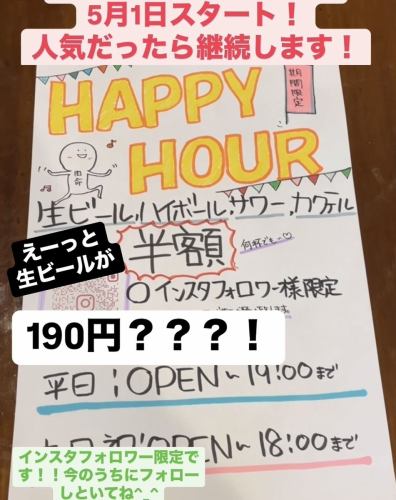 5月1日スタート！
人気だったら継続します！
期間限定
HAPPY
HOUR
生ビール,ハイボール,サワー,カクテル
えーっと
生ビールが
半額
何杯でも〜♡
○インスタフォロワー様限定
190円？？？！
平日：OPEN〜19:00まで
土日祝：OPEN〜18:00まで
インスタフォロワー限定で
す！！今のうちにフォロー
しといてね^_^